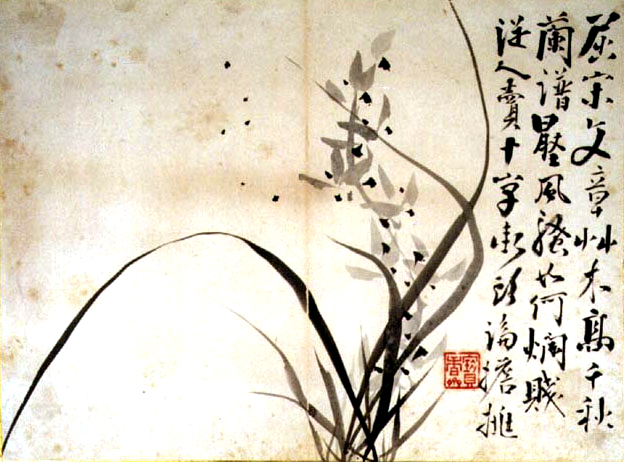 屈宋文章艸木高千秋
蘭譜壓風騷如何爛賤
從人賣十字街頭論擔挑